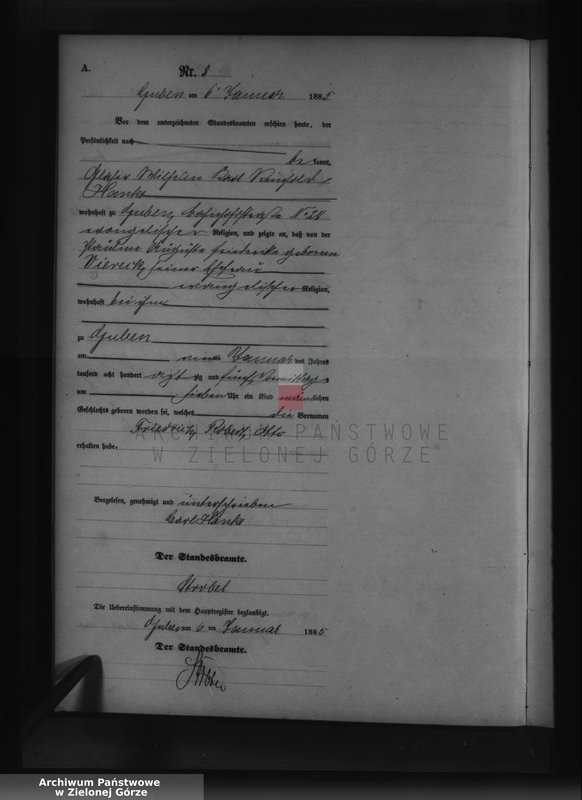 A.
Nr. 8
Guben am 6. Januar 1885
Vor dem unterzeichneten Standesbeamten erschien heute, der
Persönlichkeit nach
be kannt,
Wilhelm Karl Reinhold
Hanke
wohnhaft zu Guben, Bahnhofstraße No 28
evangelischer Religion, und zeigte an, daß von der
Pauline Auguste Friederike geborenen
seiner Ehefrau
evangelischer Religion,
wohnhaft bei ihm
zu Guben
am Januar des Jahres
tausend acht hundert acht zig und fünf Vormittags
um sieben Uhr ein Kind männlichen
Geschlechts geboren worden sei, welches die Vornamen
Friedrich Robert Otto
erhalten habe.
ARCHIWUM PAŃSTWOWE
W ZIELONEJ GÓRZE
Vorgelesen, genehmigt und unterschrieben
Carl Hanke
Der Standesbeamte.
Strobel
Die Uebereinstimmung mit dem Hauptregister beglaubigt.
Guben am 6 ten Januar 1885
Der Standesbeamte.
Archiwum Państwowe
w Zielonej Górze